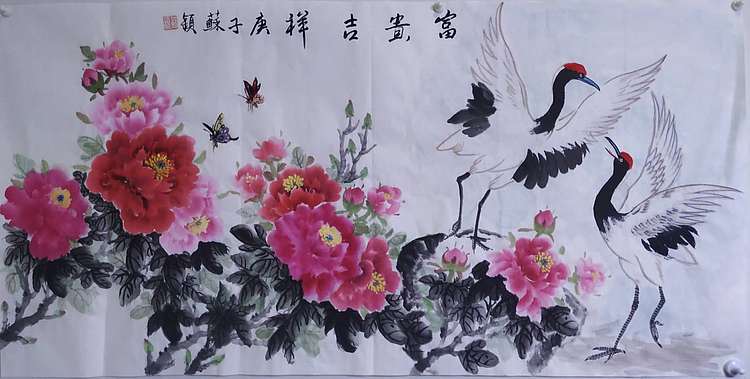 富貴吉祥庚子蘇穎